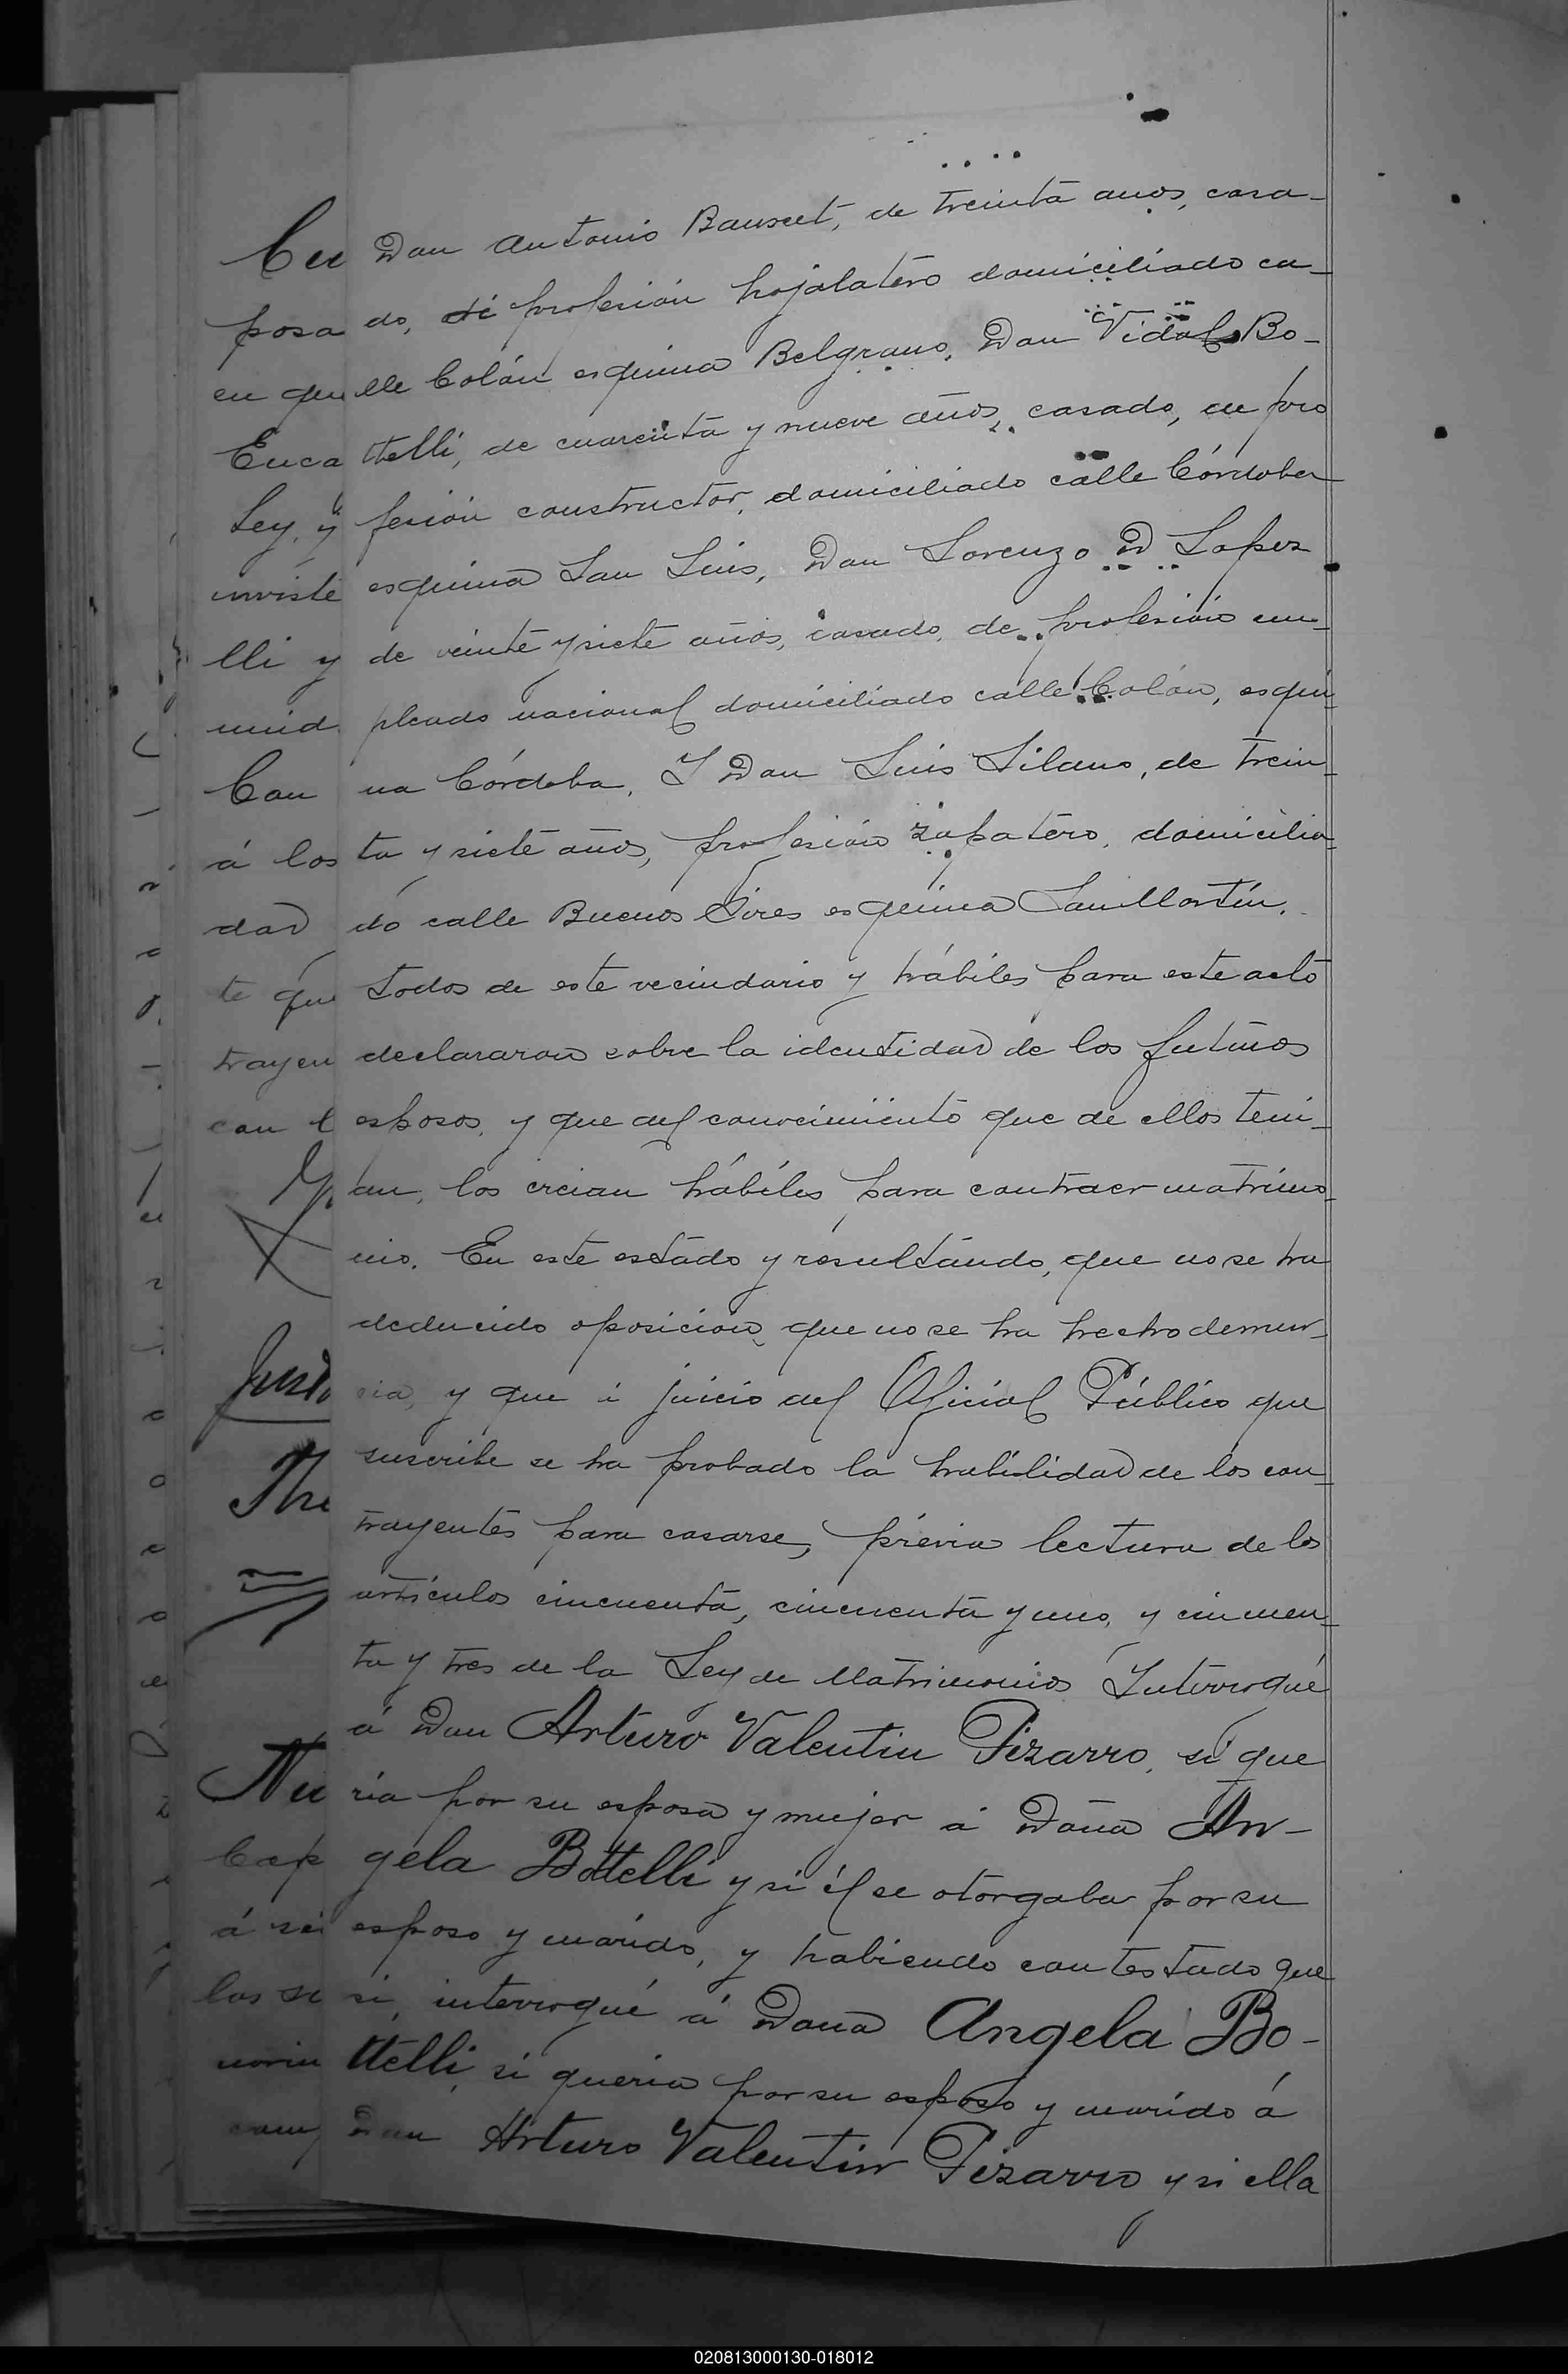 Don Antonio Bauseet, de treinta anos, casa-
do, de profesión hojalatero domiciliado ca-
lle Colón esquina Belgrano, Don Vidal Bo-
ttelli, de cuarenta y nueve años, casado, de pro
fesión constructor, domiciliado calle Córdoba
esquina San Luis, Don Lorenzo D Lopez
de veinte y siete años, casado, de profesión em-
pleado nacional domiciliado calle Colón, esqui-
na Córdoba, Y Don Luis Silano, de trein-
ta y siete años, profesión zapatero, domicilia-
do calle Buenos Aires esquina San Martín.
todos de este vecindario y hábiles para este acto
declararon sobre la identidad de los futuros
esposos, y que del conocimiento que de ellos tení-
an, los creian hábiles para contraer matrimo-
nio. En este estado y resultando, que no se ha
deducido oposicion, que no se ha hecho denun-
cia, y que á juicio del Oficial Público que
suscribe se ha probado la habilidad de los con-
trayentes para casarse, prévia lectura de los
artículos cincuenta, cincuenta y uno, y cincuen-
ta y tres de la Ley de Matrimonios Interrogué
á Don Arturo Valentin Pizarro, si que
ria por su esposa y mujer á Doña An-
gela Bottelli y si él se otorgaba por su
esposo y marido, y habiendo contestado que
si, interrogué á Doña Angela Bo-
ttelli, si queria por su esposo y marido á
Don Arturo Valentin Pizarro y si ella
Cu
posa
en que
Enca
Ley, y
inviste
lli y
unid
Con
á los
dad
te que
trayen
con l
Justo
The
Nú
Cap
á sei
los se
020813000130-018012